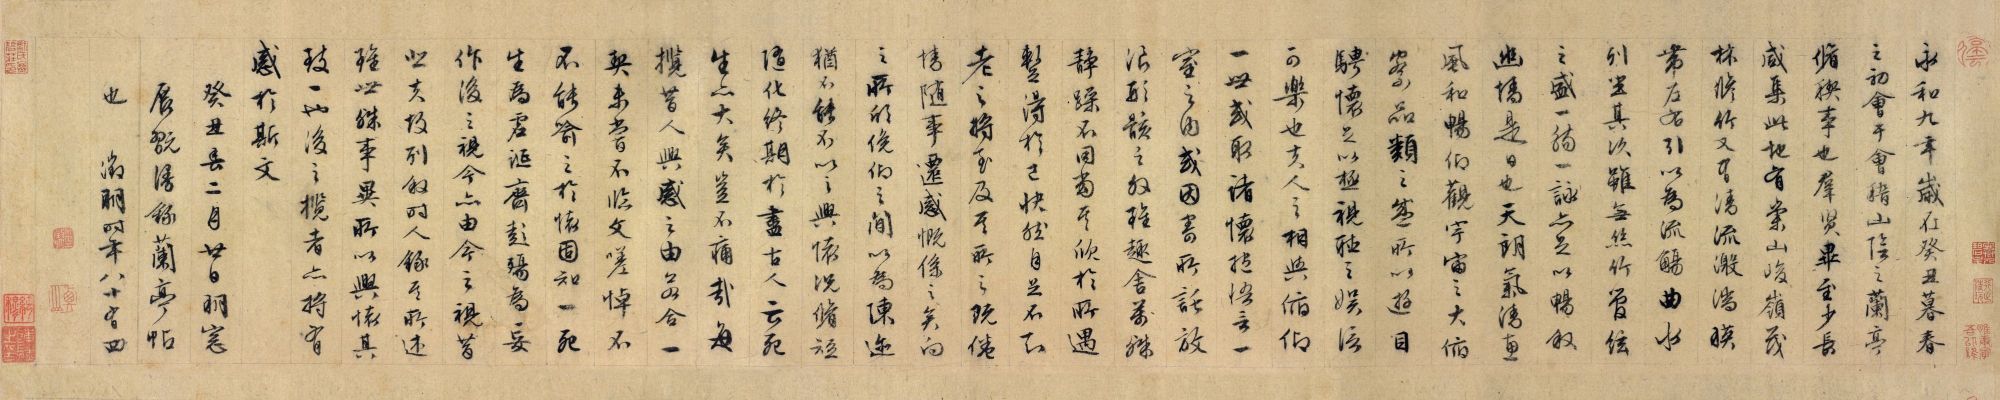 永和九年歲在癸丑暮春
之初會于會稽山陰之蘭亭
脩稧事也羣賢畢至少長
咸集此地有崇山峻嶺茂
林脩竹又有清流激湍暎
帶左右引以為流觴曲水
列坐其次雖無絲竹管絃
之盛一觴一詠亦足以暢敘
幽情是日也天朗氣清惠
風和暢仰觀宇宙之大俯
察品類之盛所以遊目
騁懷足以極視聽之娛信
可樂也夫人之相與俯仰
一世或取諸懷抱悟言一
室之內或因寄所託放
浪形骸之外雖趣舍萬殊
靜躁不同當其欣於所遇
暫得於己快然自足不知
老之將至及其所之既倦
情隨事遷感慨係之矣向
之所欣俛仰之間以為陳迹
猶不能不以之興懷況脩短
隨化終期於盡古人云死
生亦大矣豈不痛哉每
攬昔人興感之由若合一
契未嘗不臨文嗟悼不
不能喻之於懷固知一死
生為虛誕齊彭殤為妄
作後之視今亦由今之視昔
悲夫故列敘時人錄其所述
雖世殊事異所以興懷其
致一也後之攬者亦將有
感於斯文
癸丑春二月廿日明窓
展翫漫錄蘭亭帖
也 徵明時年八十有四